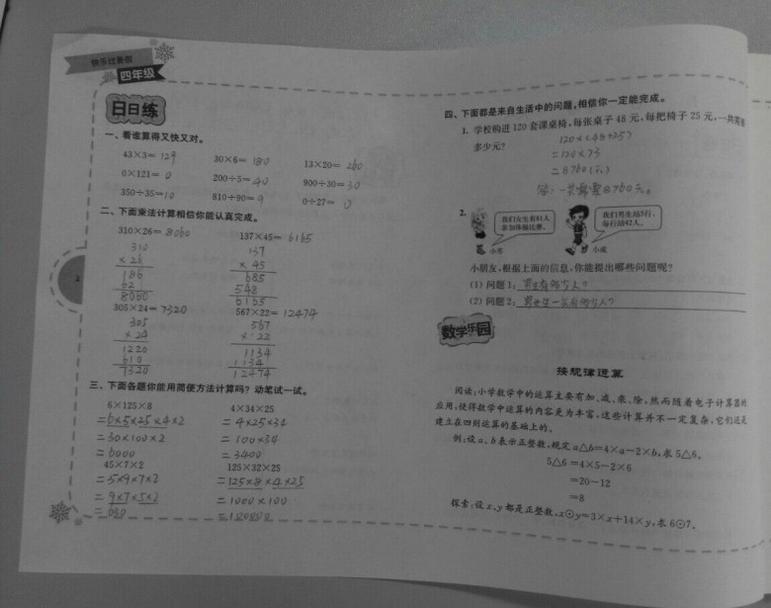 快乐过暑假
四年级
日日练
一、看谁算得又快又对。
43×3=129 30×6=180 13×20=260
0×121=0 200÷5=40 900÷30=30
350÷35=10 810÷90=9 0÷27=0
二、下面乘法计算相信你能认真完成。
310×26=8060 137×45=6165
310 137
×26 ×45
186 685
62 548
8060 6165
305×24=7320 567×22=12474
305 567
×24 ×22
1220 1134
610 1134
7320 12474
三、下面各题你能用简便方法计算吗?动笔试一试。
6×125×8 4×34×25
=6×5×25×4×2 =4×25×34
=30×100×2 =100×34
=6000 =3400
45×7×2 125×32×25
=5×9×7×2 =125×8×4×25
=9×7×5×2 =1000×100
=630
2
四、下面都是来自生活中的问题,相信你一定能完成。
1. 学校购进120套课桌椅,每张桌子48元,每把椅子25元,一共需要
多少元?
120×(48+25)
=120×73
=8760(元)
答:一共需要8760元。
2.
我们女生有41人
参加体操比赛。
我们男生站5行,
每行站42人。
小芳 小成
小朋友,根据上面的信息,你能提出哪些问题呢?
(1) 问题1:男生有多少人?
(2) 问题2:男女生一共有多少人?
数学乐园
按规律运算
阅读:小学数学中的运算主要有加、减、乘、除,然而随着电子计算器的
应用,使得数学中运算的内容更为丰富,这些计算并不一定复杂,它们还是
建立在四则运算的基础上的。
例:设a、b表示正整数,规定a△b=4×a-2×b,求5△6。
5△6=4×5-2×6
=20-12
=8
探索:设x、y都是正整数,x⊙y=3×x+14×y,求6⊙7。